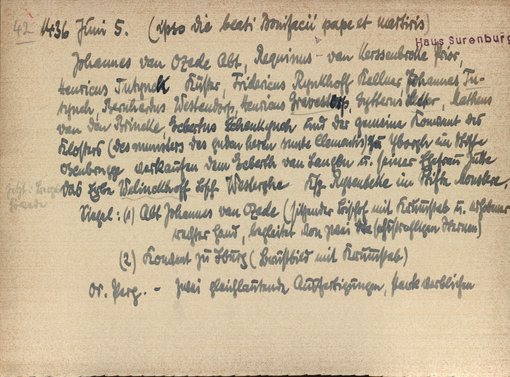 42 1436 Juni 5. (ipso die beati Bonifacii pape et martiris)
Haus Surenburg
Johannes van Ozede Abt, Requinus van Kerssenbroke Prior,
Henricus Tutynck Küster, Fridericus Rynkhoff Kellner, Johannes Tu-
tynch, Bernhardus Westendorp, Henricus Grevenkorp, Matheus
van den Brincke, und der gemeine Konvent des
Klosters (des munsters des guden heren sunte Clementis) zu Yborgh im Stifte
Osenbrugge verkaufen dem Everth van Langen u. seiner Ehefrau Jutte
das Erbe Wilinckhoff Ksp. Resenbeke im Stifte Monstere.
Siegel: (1) Abt Johannes van Ozede (sitzender Bischof mit Krummstab u. erhobener
rechter Hand, begleitet von zwei Sternen)
(2) Konvent zu Iburg (Brustbild mit Krummstab)
Or. Perg. - zwei gleichlautende Ausfertigungen, stark verblichen